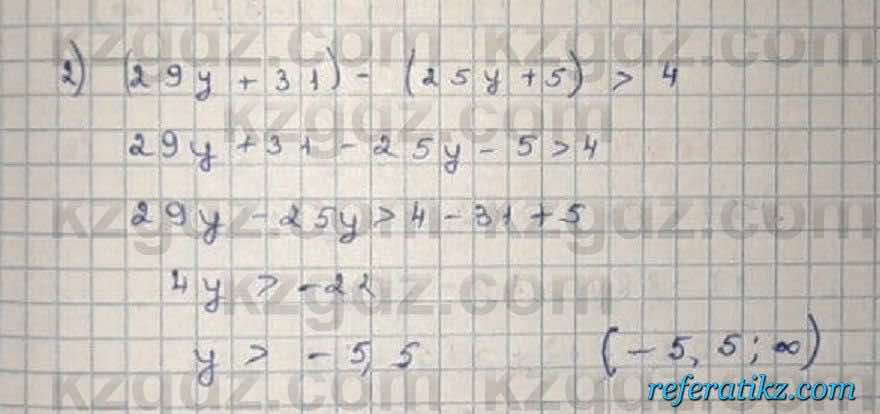 kzgdz.com kzgdz.com
2) (29y + 31) - (25y + 5) > 4
kzgdz.com
29y + 31 - 25y - 5 > 4
29y - 25y > 4 - 31 + 5
kzgdz.com kzgdz.com
4y > -22
kzgdz.com
y > -5,5 (-5,5; ∞)
kzgdz.com
referatikz.com